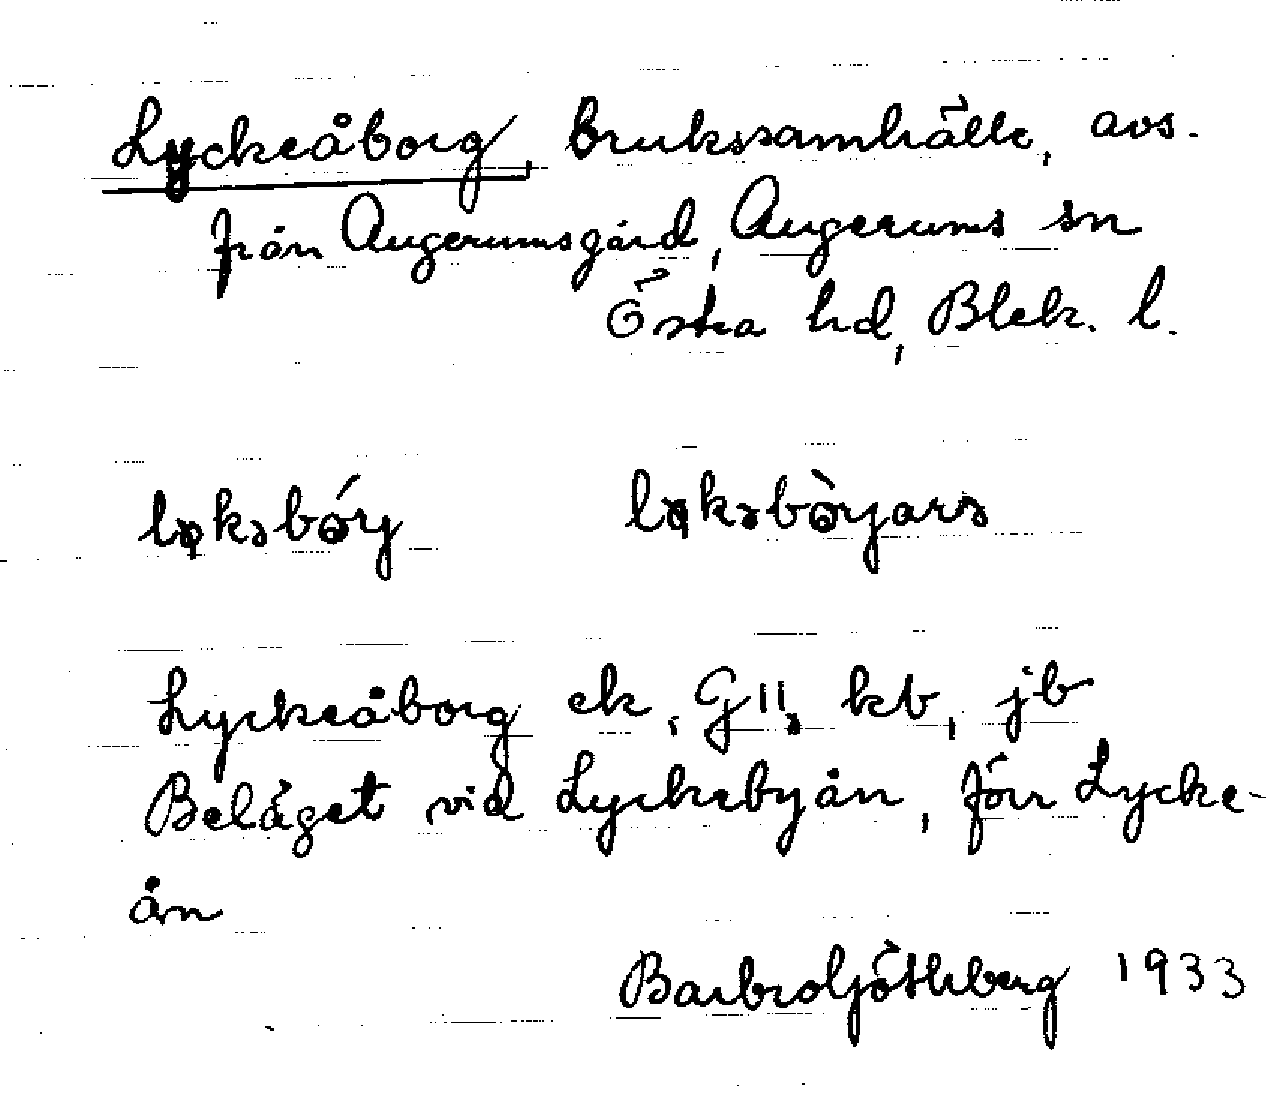 Lyckeåborg, brukssamhälle, avs.
från Augerumsgård, Augerums sn
Östra hd, Blek. l.
Lyckeåborg ek, GII, kb, jb
Beläget vid Lyckebyån, förr Lycke-
ån
Barbro Götherberg 1933